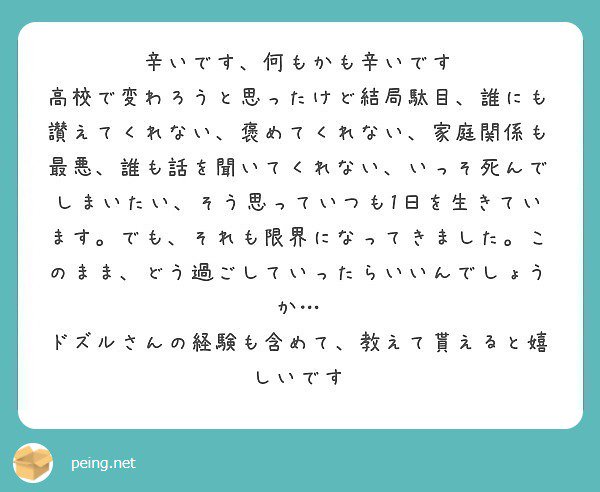 辛いです、何もかも辛いです
高校で変わろうと思ったけど結局駄目、誰にも
讃えてくれない、褒めてくれない、家庭関係も
最悪、誰も話を聞いてくれない、いっそ死んで
しまいたい、そう思っていつも1日を生きてい
ます。でも、それも限界になってきました。こ
のまま、どう過ごしていったらいいんでしょう
か…
ドズルさんの経験も含めて、教えて貰えると嬉
しいです
peing.net